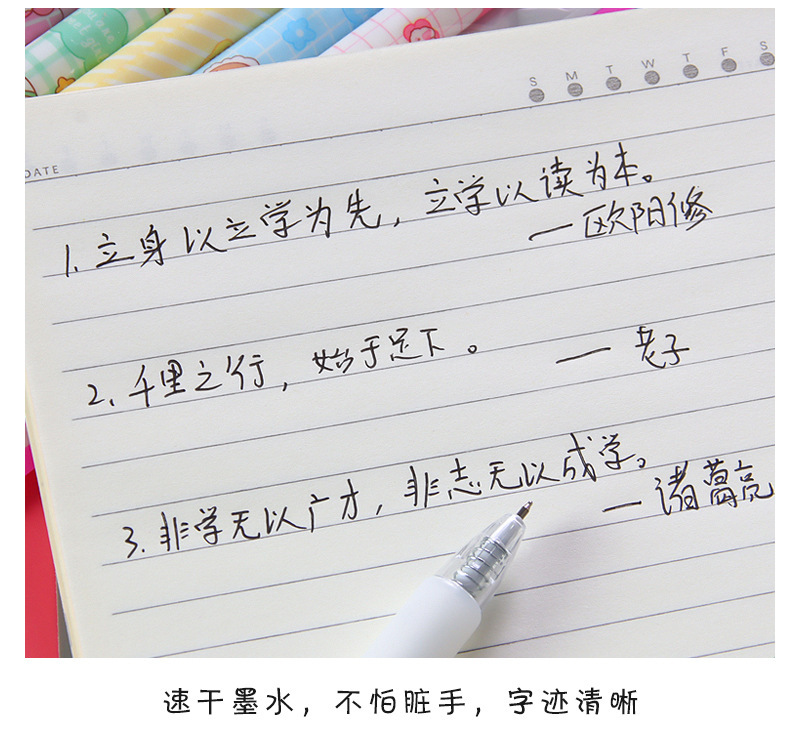 S M T W T F S
DATE
1. 立身以立学为先，立学以读为本。
— 欧阳修
2、千里之行，始于足下。 — 老子
3. 非学无以广才，非志无以成学。
— 诸葛亮
速干墨水，不怕脏手，字迹清晰